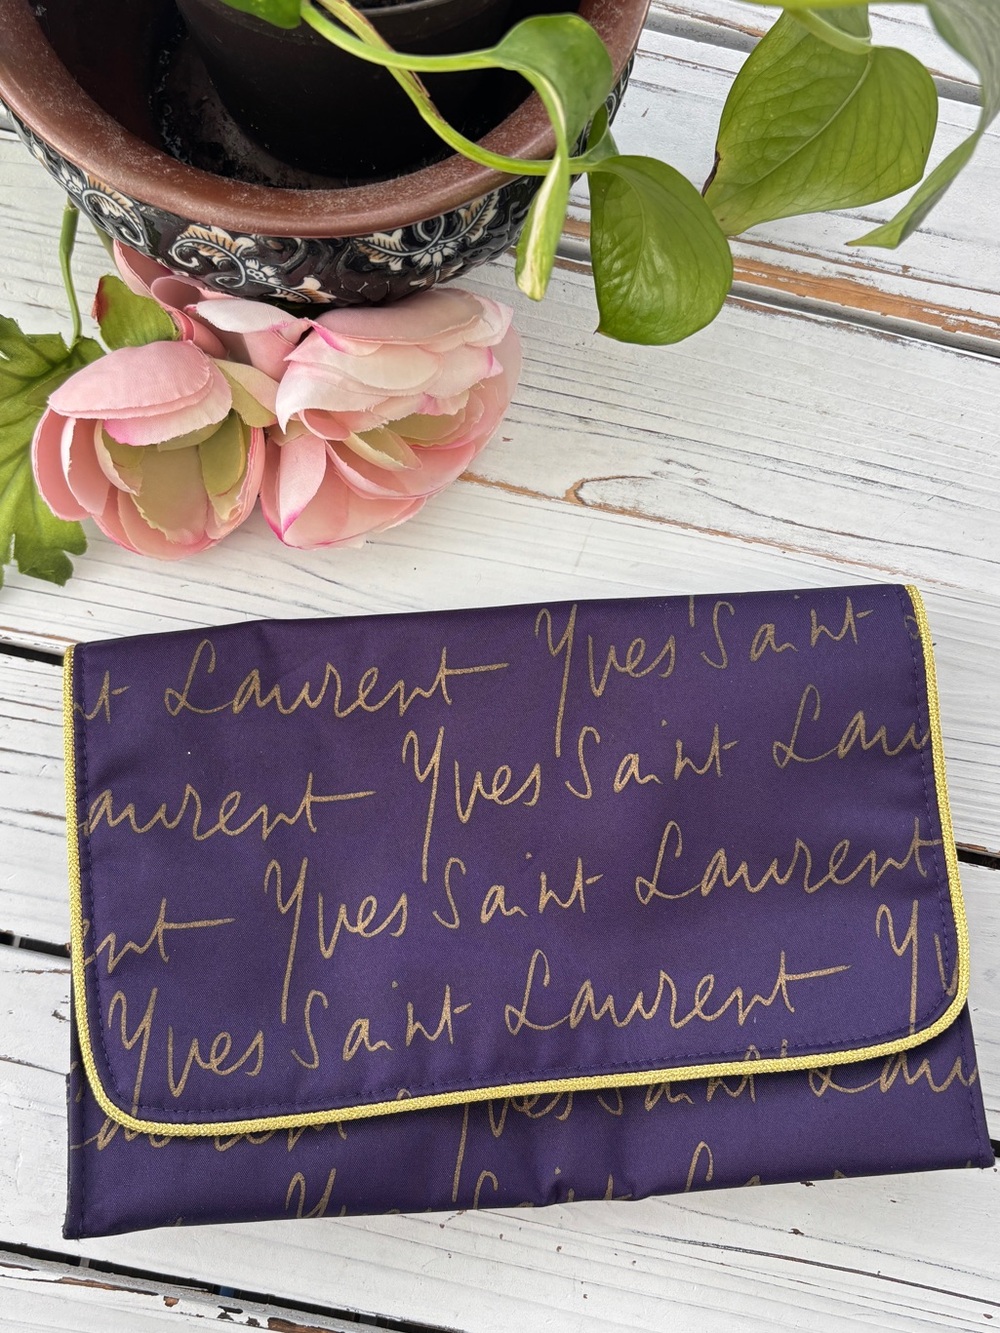 t Laurent Yves Saint
aurent Yves Saint Lau
nt Yves Saint Laurent
Yves Saint Laurent Y
aurent Yves Saint Lau
Y